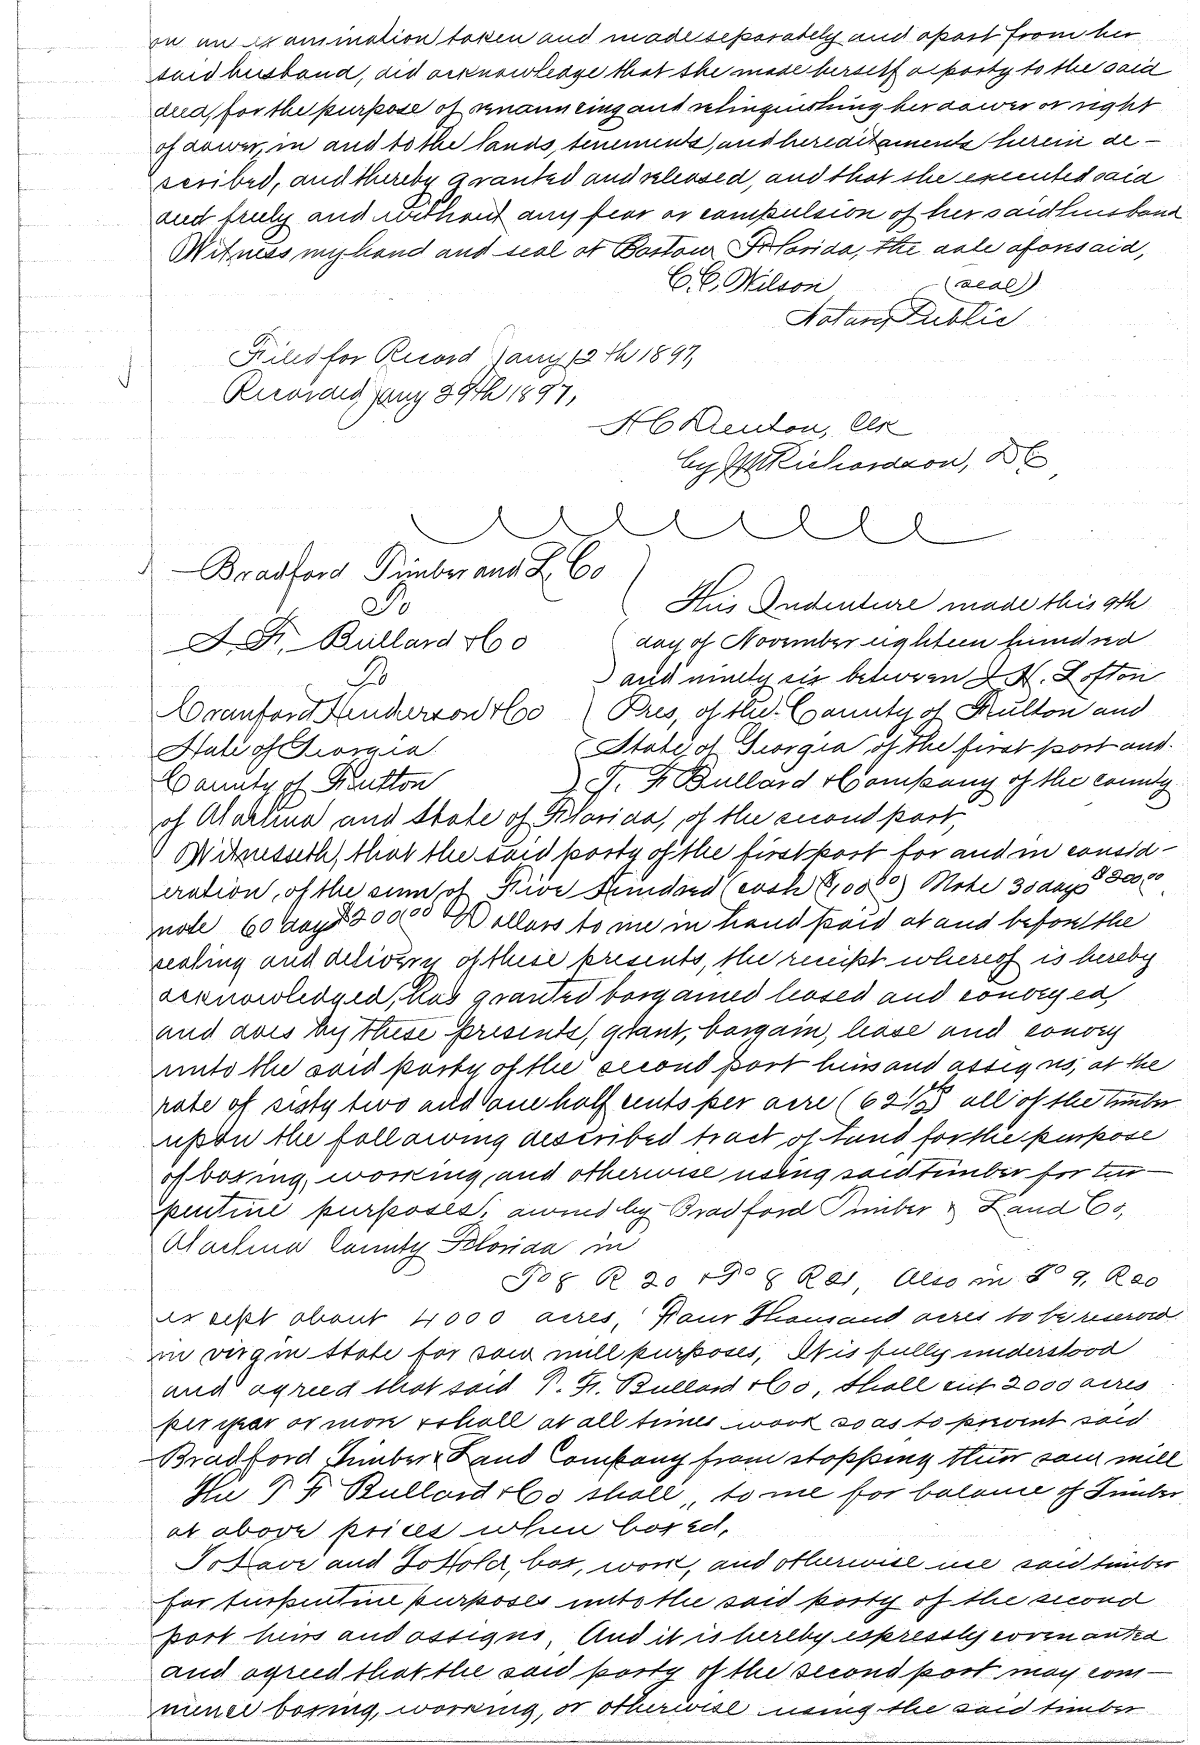 on an examination taken and made separately and apart from her
said husband, did acknowledge that she made herself a party to the said
deed, for the purpose of renouncing and relinquishing her dower or right
of dower, in and to the lands, tenements, and hereditaments herein de-
scribed, and thereby granted and released, and that she executed said
deed freely and without any fear or compulsion of her said husband
Witness my hand and seal at Florida, the date aforesaid,
C. C. Wilson (seal)
Notary Public
Filed for Record Jany 12th 1897,
Recorded Jany 29th 1897,
H C Denton, Clk
by Richardson, D C
Bradford Timber and L. Co
To
J. F. Bullard & Co
To
Cranford Henderson & Co
State of Georgia
County of Fulton
This Indenture made this 9th
day of November eighteen hundred
and ninety six between J. N. Lofton
Pres, of the County of Fulton and
State of Georgia of the first part and
T. F Bullard & Company of the county
of Alachua and State of Florida, of the second part,
Witnesseth, that the said party of the first part for and in consid-
eration, of the sum of Five Hundred (cash $100.00) Note 30 days $200.00
note 60 days $200.00 Dollars to me in hand paid at and before the
sealing and delivery of these presents, the receipt whereof is hereby
acknowledged, has granted bargained leased and conveyed,
and does by these presents, grant, bargain, lease and convey
unto the said party of the second part heirs and assigns, at the
rate of sixty two and one half cents per acre (62½) all of the timber
upon the following described tract of land for the purpose
of boxing, working, and otherwise using said timber for tur-
pentine purposes, owned by Bradford Timber & Land Co,
Alachua County Florida in
To 8 R 20 & To 8 R 21, Also in To 9, R 20
except about 4000 acres, Four Thousand acres to be reserved
in virgin state for saw mill purposes, It is fully understood
and agreed that said T. F. Bullard & Co, shall cut 2000 acres
per year or more & shall at all times work so as to prevent said
Bradford Timber & Land Company from stopping their saw mill
The T F Bullard & Co shall, to me for balance of Timber
at above prices when boxed,
To Have and To Hold, box, work, and otherwise use said timber
for turpentine purposes unto the said party of the second
part heirs and assigns, And it is hereby expressly covenanted
and agreed that the said party of the second part may com-
mence boxing, working, or otherwise using the said timber